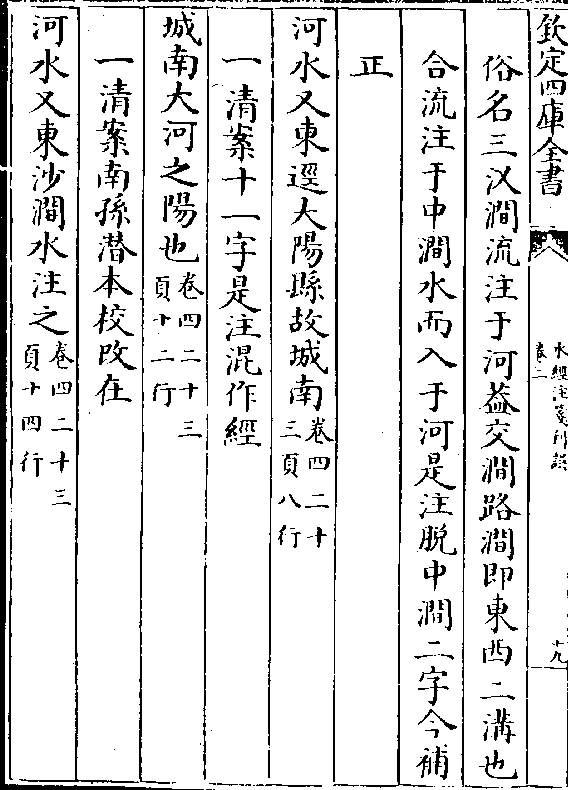 欽定四庫全書
水經注箋刊誤
卷二
十九
俗名三汊澗流注于河葢交澗路澗即東西二溝也
合流注于中澗水而入于河是注脱中澗二字今補
正
河水又東逕大陽縣故城南卷四二十三頁八行
一清案十一字是注混作經
城南大河之陽也卷四二十三頁十二行
一清案南孫潜本校改在
河水又東沙澗水注之卷四二十三頁十四行